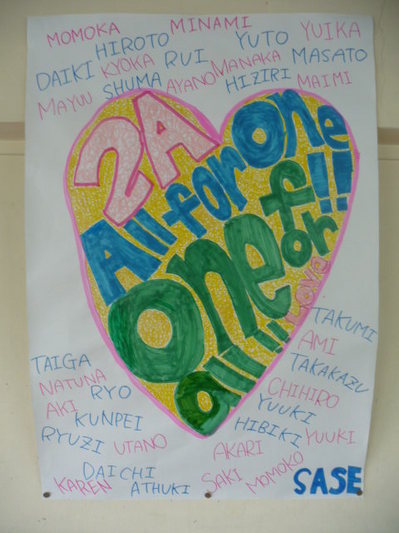 MOMOKA MINAMI
HIROTO YUTO YUIKA
DAIKI KYOKA RUI MANAKA MASATO
MAYUU SHUMA AYANO HIZIRI MAIMI
2A
All for one!!
one for
all!!
TAKUMI
TAIGA AMI
NATUNA RYO TAKAKAZU
AKI CHIHIRO
KUNPEI YUUKI
RYUZI UTANO HIBIKI YUUKI
AKARI
DAICHI SAKI MOMOKO
KAREN ATHUKI SASE